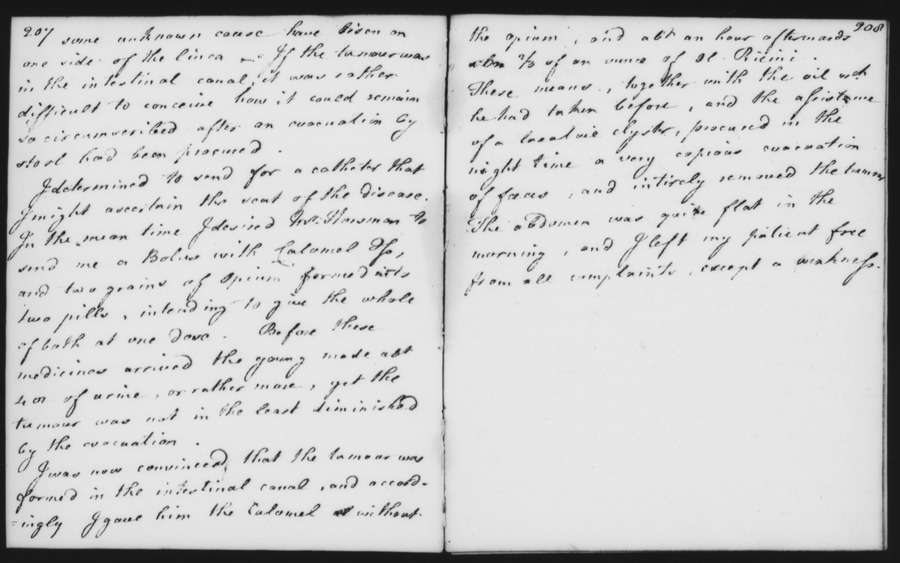 207
some unknown cause have risen on
one side of the linea — If the tumour was
in the intestinal canal, it was rather
difficult to conceive how it could remain
so circumscribed after an evacuation by
stool had been procured.
I determined to send for a catheter that
I might ascertain the seat of the disease.
In the mean time I desired Mr. Horsman to
send me a Bolus with Calomel
and two grains of Opium formed into
two pills, intending to give the whole
of both at one dose. Before these
medicines arrived the young made abt
4 oz of urine, or rather more, yet the
tumour was not in the least diminished
by the evacuation.
I was now convinced, that the tumour was
formed in the intestinal canal, and accord-
=ingly I gave him the Calomel without
208
the opium, and abt an hour afterwards
of an ounce of Ol. Ricini.
These means, together with the oil wch
he had taken before, and the assistance
of a laxative clyster, procured in the
night time a very copious evacuation
of faeces, and intirely removed the tumour
The abdomen was quite flat in the
morning, and I left my patient free
from all complaints, except a weakness.